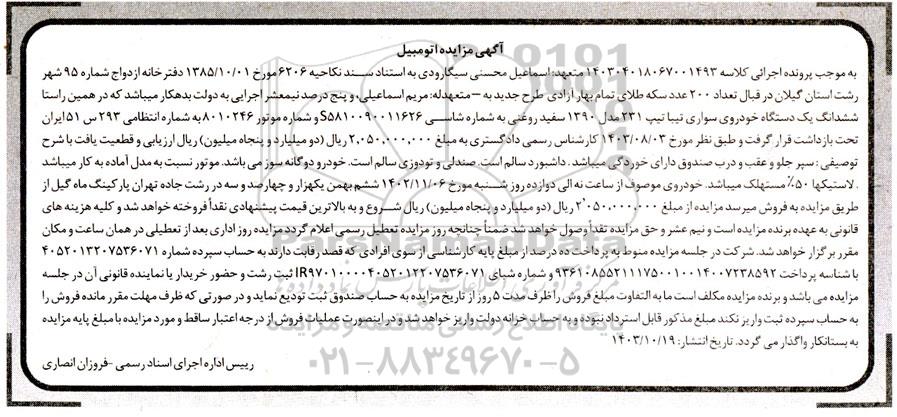 آگهی مزایده اتومبیل
به موجب پرونده اجرائی کلاسه ۱۴۰۳۰۴۰۱۸۰۶۷۰۰۱۴۹۳ متعهد: اسماعیل محسنی سیگارودی به استناد سند نکاحیه ۶۲۰۶ مورخ ۱۳۸۵/۱۰/۰۱ دفترخانه ازدواج شماره ۹۵ شهر
رشت استان گیلان در قبال تعداد ۲۰۰ عدد سکه طلای تمام بهار آزادی طرح جدید به –متعهدله: مریم اسماعیلی، و پنج درصد نیمعشر اجرایی به دولت بدهکار میباشد که در همین راستا
ششدانگ یک دستگاه خودروی سواری تیبا تیپ ۲۳۱ مدل ۱۳۹۰ سفید روغنی به شماره شاسی S۵۸۱۰۰۹۰۰۱۱۶۲۶ و شماره موتور ۸۰۱۰۲۴۶ به شماره انتظامی ۲۹۳ س ۵۱ ایران
تحت بازداشت قرار گرفت و طبق نظر مورخ ۱۴۰۳/۰۸/۰۳ کارشناس رسمی دادگستری به مبلغ ۲,۰۵۰,۰۰۰,۰۰۰ ریال (دو میلیارد و پنجاه میلیون) ریال ارزیابی و قطعیت یافت با شرح
توصیفی : سپر جلو و عقب و درب صندوق دارای خوردگی میباشد . داشبورد سالم است. صندلی و تودوزی سالم است. خودرو دوگانه سوز می باشد. موتور نسبت به مدل آماده به کار میباشد
. لاستیکها ۵۰٪ مستهلک میباشد. خودروی موصوف از ساعت نه الی دوازده روز شنبه مورخ ۱۴۰۳/۱۱/۰۶ ششم بهمن یکهزار و چهارصد و سه در رشت جاده تهران پارکینگ ماه گیل از
طریق مزایده به فروش میرسد مزایده از مبلغ ۲٬۰۵۰٬۰۰۰٬۰۰۰ ریال (دو میلیارد و پنجاه میلیون) ریال شروع و به بالاترین قیمت پیشنهادی نقداً فروخته خواهد شد و کلیه هزینه های
قانونی به عهده برنده مزایده است و نیم عشر و حق مزایده نقداً وصول خواهد شد ضمناً چنانچه روز مزایده تعطیل رسمی اعلام گردد مزایده روز اداری بعد از تعطیلی در همان ساعت و مکان
مقرر برگزار خواهد شد. شرکت در جلسه مزایده منوط به پرداخت ده درصد از مبلغ پایه کارشناسی از سوی افرادی که قصد رقابت دارند به حساب سپرده شماره ۴۰۵۲۰۱۳۲۰۷۵۳۶۰۷۱
با شناسه پرداخت ۹۳۶۱۰۸۵۵۲۱۱۱۷۵۰۰۱۰۰۱۴۰۰۷۲۳۸۵۹۲ و شماره شبای IR۹۷۰۱۰۰۰۰۴۰۵۲۰۱۲۲۰۷۵۳۶۰۷۱ ثبت رشت و حضور خریدار یا نماینده قانونی آن در جلسه
مزایده می باشد و برنده مزایده مکلف است ما به التفاوت مبلغ فروش را ظرف مدت ۵ روز از تاریخ مزایده به حساب صندوق ثبت تودیع نماید و در صورتی که ظرف مهلت مقرر مانده فروش را
به حساب سپرده ثبت واریز نکند مبلغ مذکور قابل استرداد نبوده و به حساب خزانه دولت واریز خواهد شد و در اینصورت عملیات فروش از درجه اعتبار ساقط و مورد مزایده با مبلغ پایه مزایده
به بستانکار واگذار می گردد. تاریخ انتشار: ۱۴۰۳/۱۰/۱۹
رییس اداره اجرای اسناد رسمی -فروزان انصاری
ParsNamadData
۰۲۱-۸۸۳۴۹۶۷۰-۵